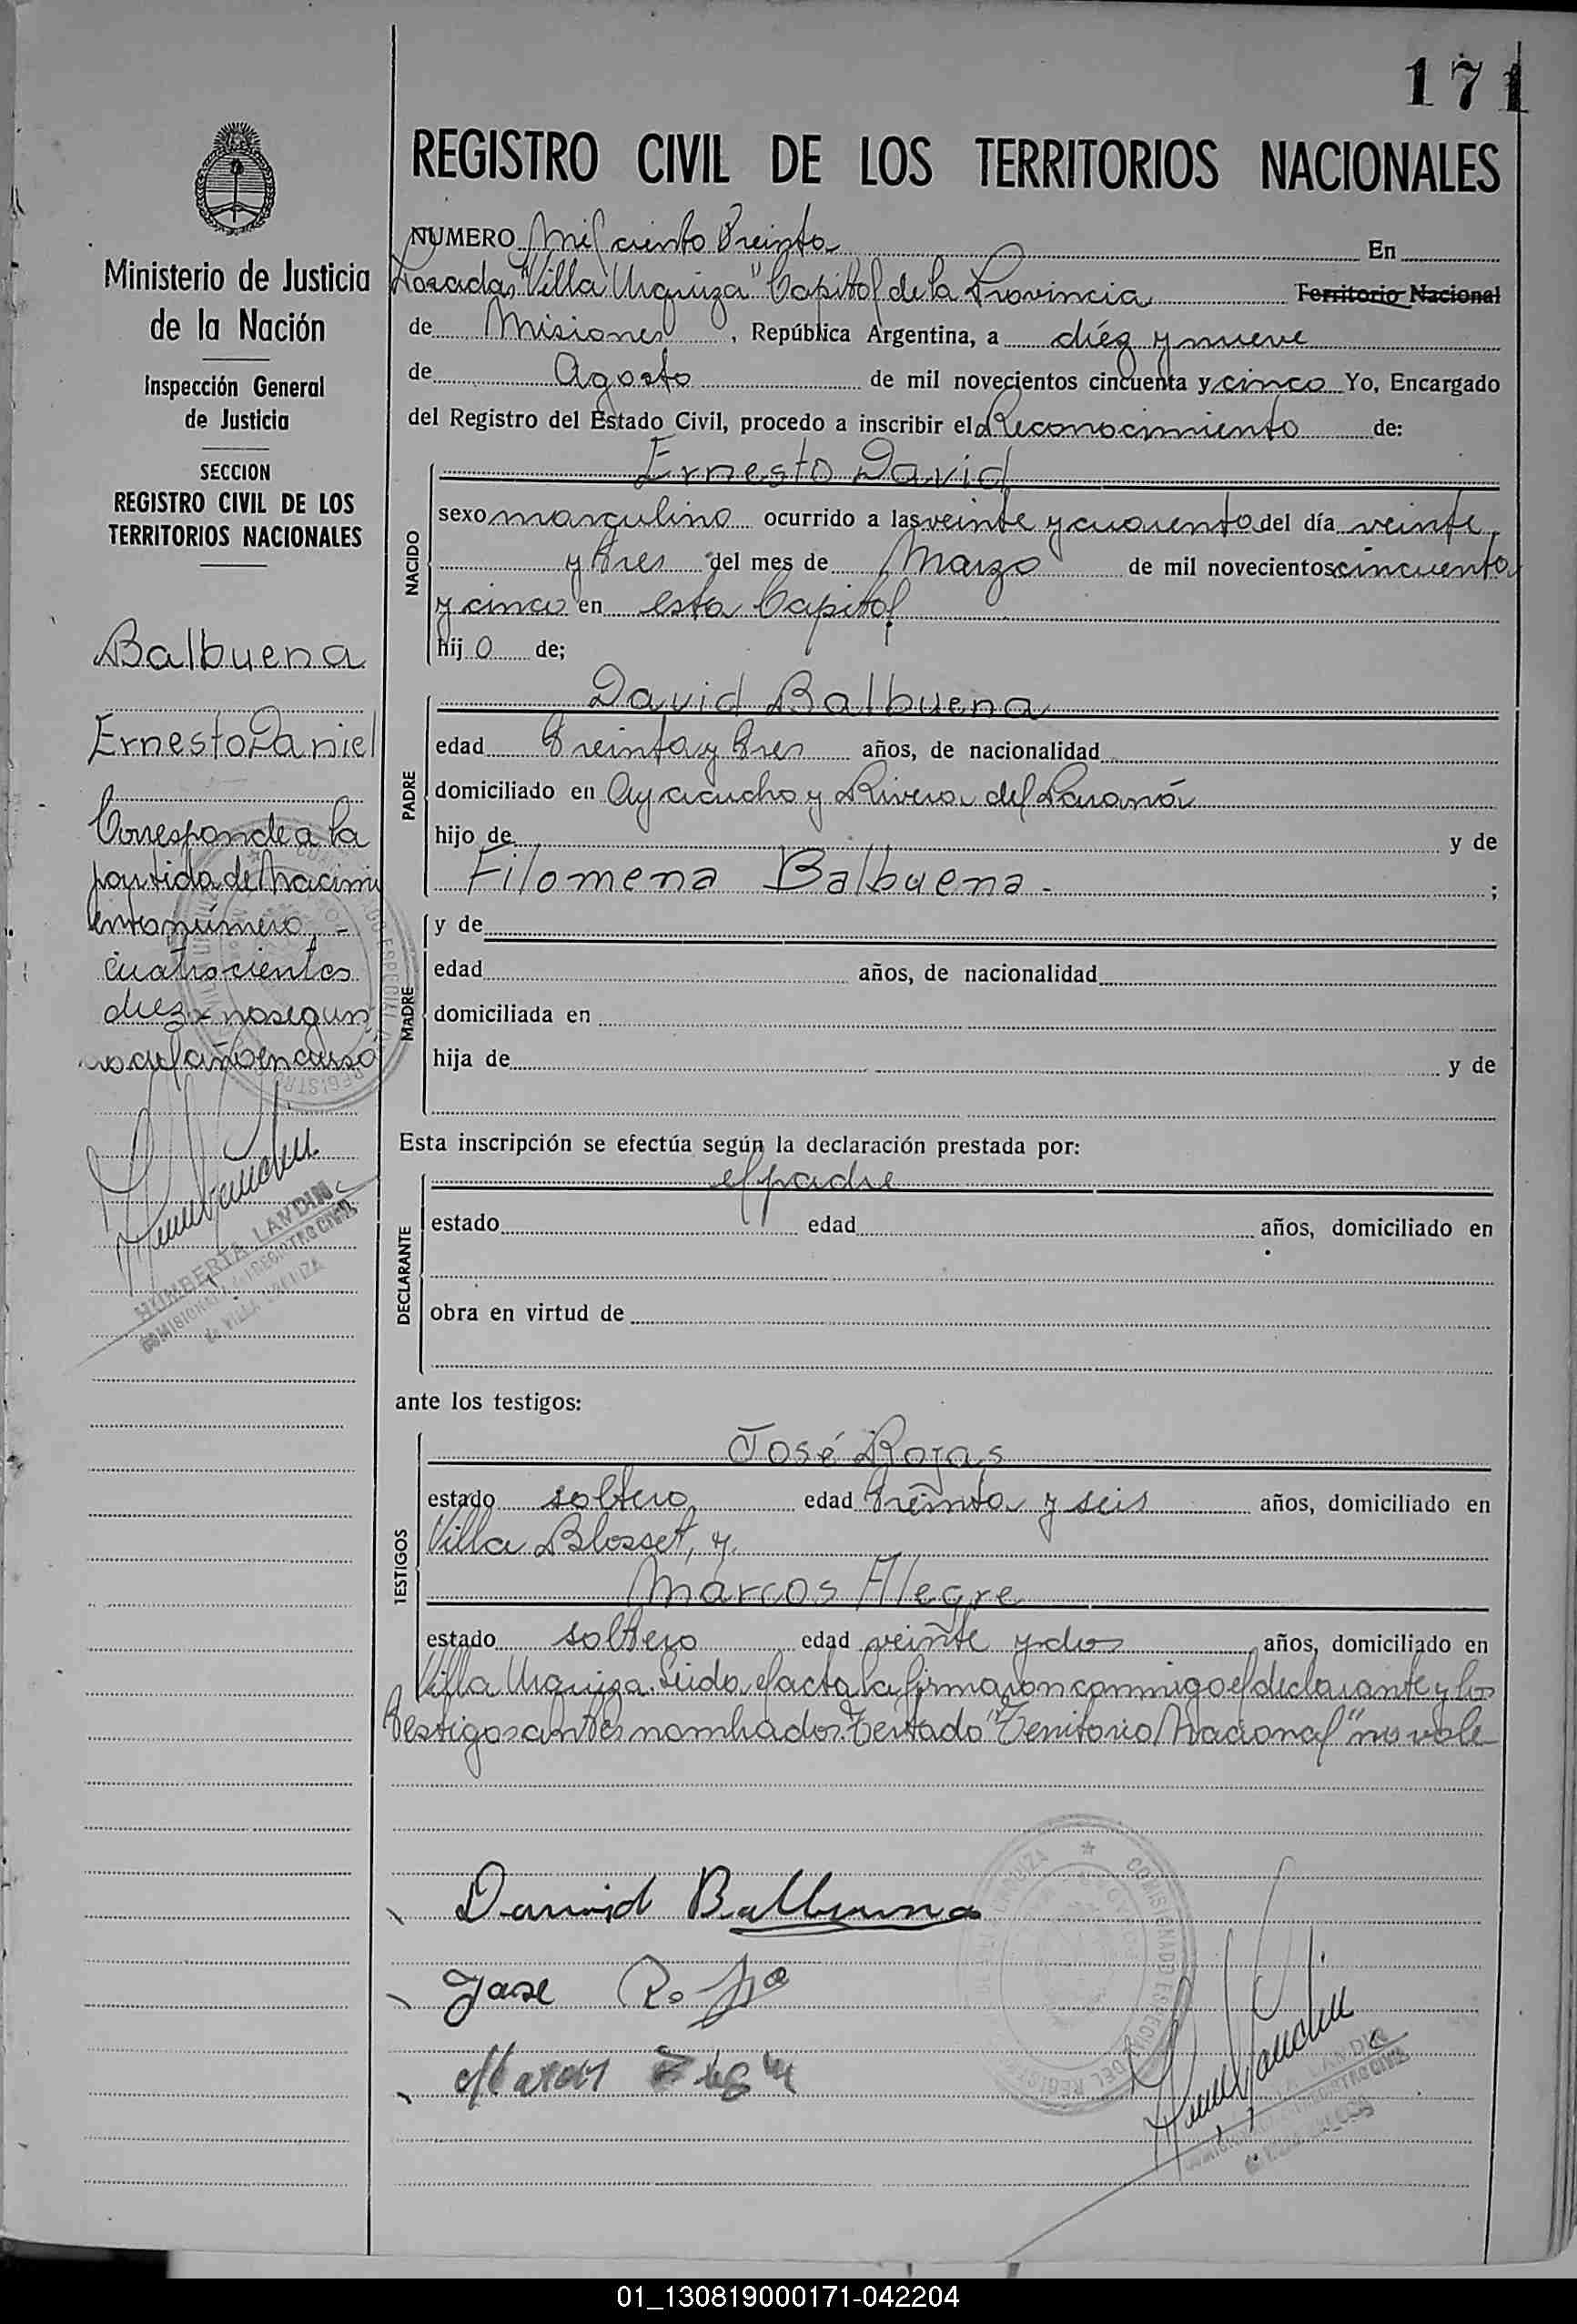 171
REGISTRO CIVIL DE LOS TERRITORIOS NACIONALES
Ministerio de Justicia
de la Nación
Inspección General
de Justicia
SECCION
REGISTRO CIVIL DE LOS
TERRITORIOS NACIONALES
Balbuena
Ernesto Daniel
Corresponde a la
partida de Nacimi
ento número -
cuatrocientos
diez
del año en curso
HUMBERTA LANDIN
NUMERO Mil ciento treinta En
Posadas "Villa Urquiza" Capital de la Provincia Territorio Nacional
de Misiones, República Argentina, a diéz y nueve
de Agosto de mil novecientos cincuenta y cinco Yo, Encargado
del Registro del Estado Civil, procedo a inscribir el Reconocimiento de:
NACIDO
Ernesto David
sexo masculino ocurrido a las veinte y cuarenta del día veinte
y tres del mes de Marzo de mil novecientos cincuenta
y cinco en esta Capital
hijo de;
PADRE
David Balbuena
edad treinta y tres años, de nacionalidad
domiciliado en Ayacucho y Rivera del Paraná
hijo de y de
Filomena Balbuena - ;
MADRE
y de
edad años, de nacionalidad
domiciliada en
hija de y de
Esta inscripción se efectúa según la declaración prestada por:
DECLARANTE
el padre
estado edad años, domiciliado en
obra en virtud de
ante los testigos:
TESTIGOS
José Rojas
estado soltero edad treinta y seis años, domiciliado en
Villa Blosset, y
Marcos Alegre
estado soltero edad veinte y dos años, domiciliado en
Villa Urquiza. Leida el acta la firmaron conmigo el declarante y los
testigos antes nombrados. Testado "Territorio Nacional" no vale
David Balbuena
Jose Rojas
01_130819000171-042204